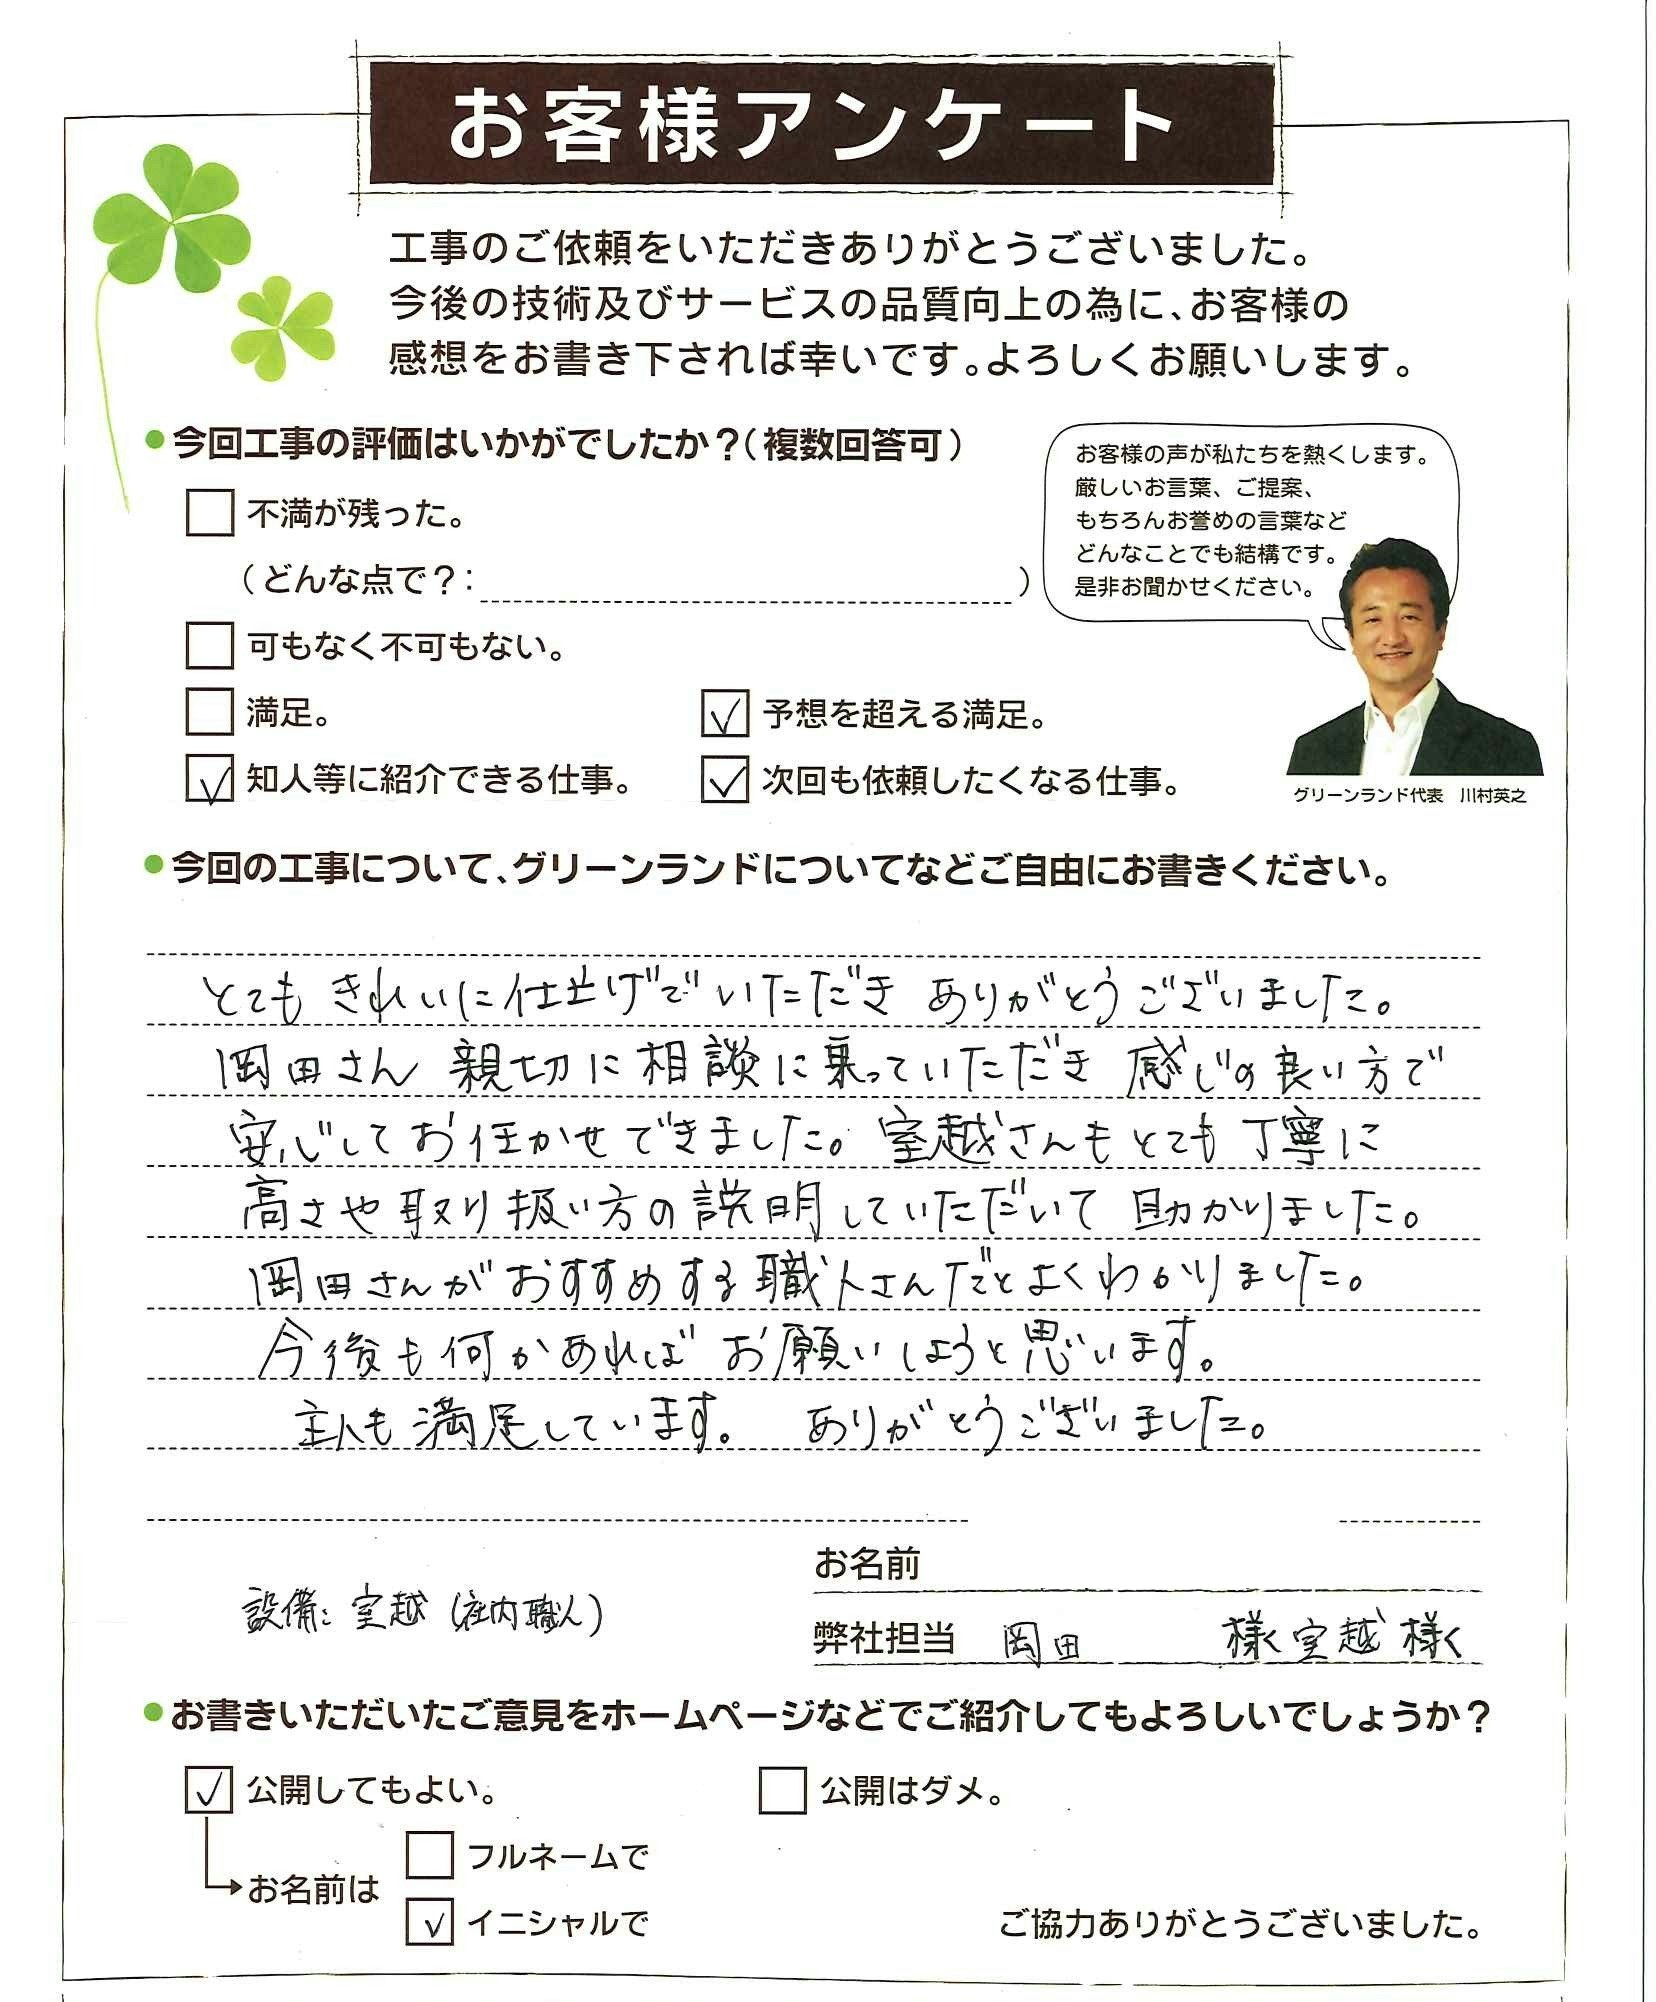 お客様アンケート
工事のご依頼をいただきありがとうございました。
今後の技術及びサービスの品質向上の為に、お客様の
感想をお書き下されば幸いです。よろしくお願いします。
今回工事の評価はいかがでしたか？（複数回答可）
不満が残った。
（どんな点で？：　）
可もなく不可もない。
満足。
予想を超える満足。
知人等に紹介できる仕事。
次回も依頼したくなる仕事。
お客様の声が私たちを熱くします。
厳しいお言葉、ご提案、
もちろんお誉めの言葉など
どんなことでも結構です。
是非お聞かせください。
グリーンランド代表　川村英之
今回の工事について、グリーンランドについてなどご自由にお書きください。
とても きれいに仕上げでいただき ありがとうございました。
岡田さん 親切に相談に乗っていただき 感じの良い方で
安心してお任かせできました。室越さんもとても丁寧に
高さや取り扱い方の説明していただいて 助かりました。
岡田さんがおすすめする職人さんだとよくわかりました。
今後も何かあれば お願いしようと思います。
主人も満足しています。 ありがとうございました。
設備：室越（社内職人）
お名前
弊社担当 岡田 様 室越様
お書きいただいたご意見をホームページなどでご紹介してもよろしいでしょうか？
公開してもよい。
公開はダメ。
お名前は
フルネームで
イニシャルで
ご協力ありがとうございました。